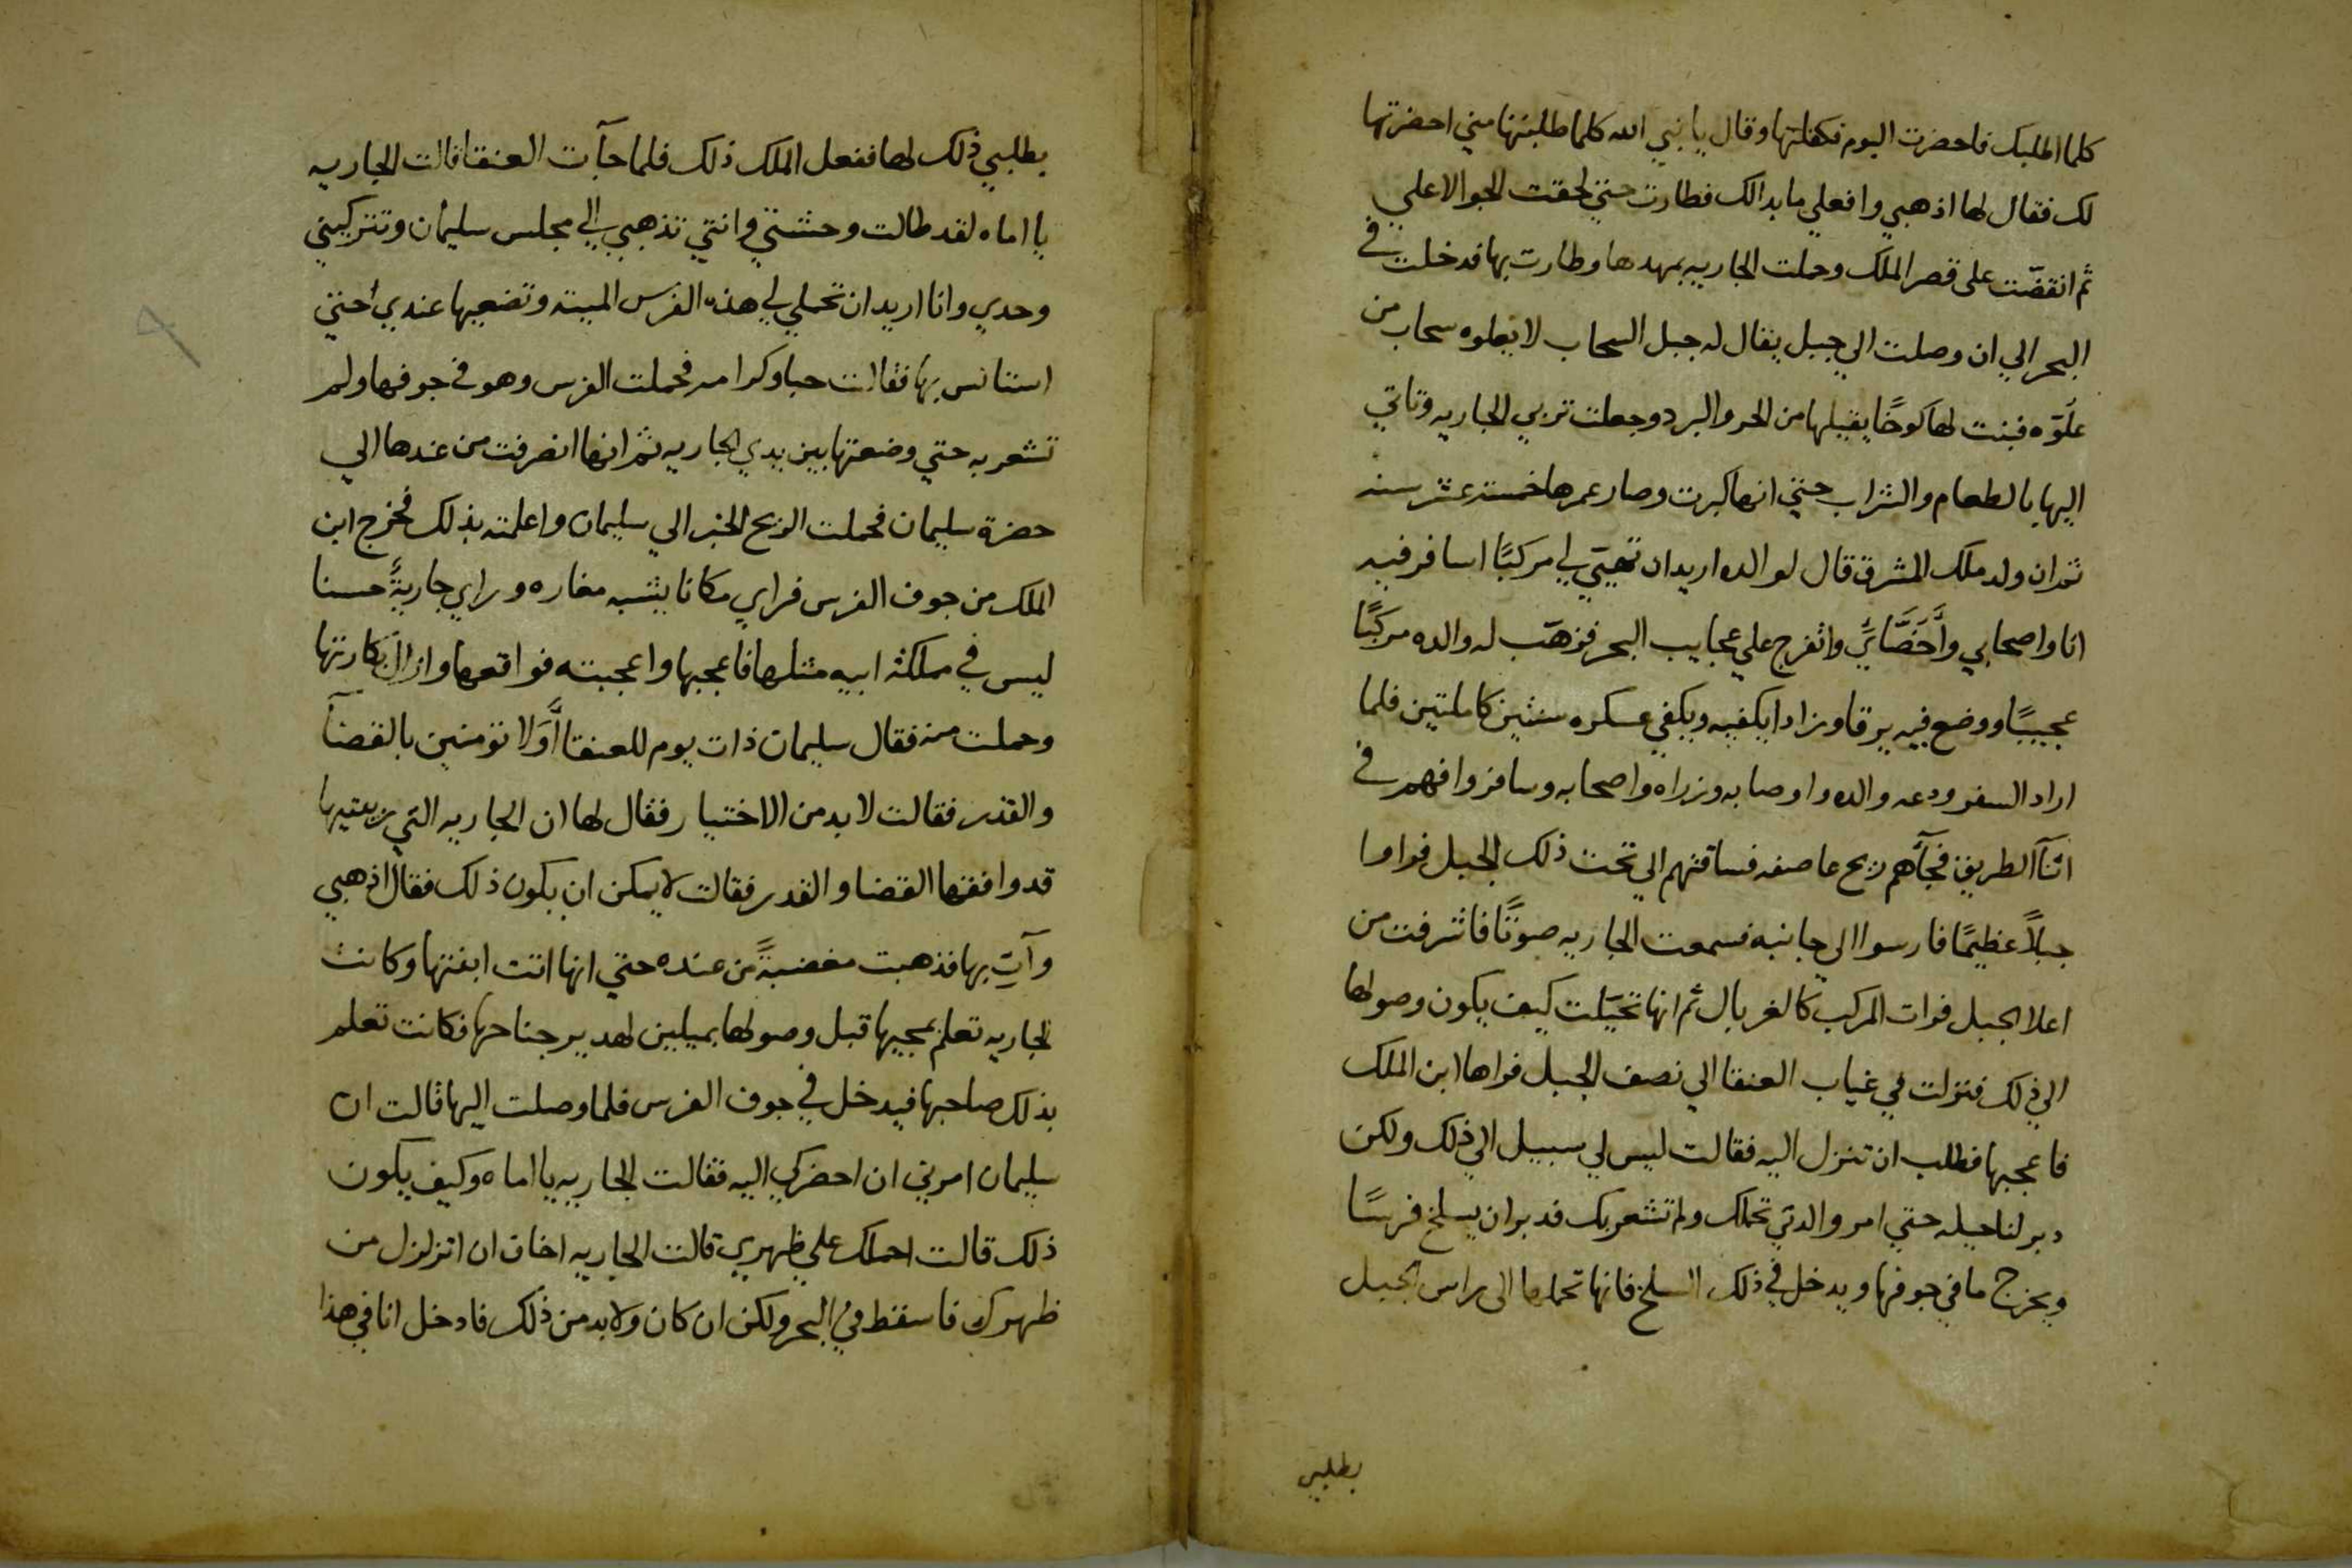 كلما اطلبك فاحضرت اليوم فكفلتها وقال يا نبي الله كلما طلبتها مني احضرتها
لك فقال لها اذهبي وافعلي ما بدالك فطارت حتي لحقت الجو الاعلي
ثم انقضّت على قصر الملك وحملت الجاريه بمهدها وطارت بها فدخلت في
البحر الي ان وصلت الي جبل يقال له جبل السحاب لا يعلوه سحاب من
علّوه فبنت لها كوخًا يقيلها من الحر والبرد وجعلت تربي الجاريه وتاتي
اليها بالطعام والشراب حتي انها كبرت وصار عمرها خمسة عشر سنه
ثم ان ولد ملك المشرق قال لوالده اريد ان تهيّي لي مركبًا اسافر فيه
انا واصحابي واتفرج علي عجايب البحر فوهّب له والده مركبًا
عجيبًا ووضع فيه يرقا وزادا يكفيه ويكفي عسكره سنتين كاملتين فلما
اراد السفر ودعه والده واوصا به وزراه واصحابه وسافروا فهم في
اثنآ الطريق فجآهم ريح عاصفه فساقتهم الي تحت ذلك الجبل فراوا
جبلاً عظيمًا فارسوا الي جانبه فسمعت الجاريه صوتًا فاشرفت من
اعلا الجبل فرات المركب كالغربال ثم انها تخيّلت كيف يكون وصولها
الي ذلك فنزلت في غياب العنقا الي نصف الجبل فراها ابن الملك
فاعجبها فطلب ان تنزل اليه فقالت ليس لي سبيل الي ذلك ولكن
دبر لنا حيله حتي امر والدتي تحملك ولم تشعر بك فدبر ان يسلخ فرسًا
ويخرج ما في جوفها ويدخل في ذلك السلخ فانها تحملها الى راس الجبل
بطلبي
بطلبي ذلك لها ففعل الملك ذلك فلما جآت العنقا قالت الجاريه
يا اماه لقد طالت وحشتي وانتي تذهبي الي مجلس سليمان وتتركيني
وحدي وانا اريد ان تحملي لي هذه الفرس الميته وتضعيها عندي حتي
استانس بها فقالت حبا وكرامه فحملت الفرس وهو في جوفها ولم
تشعر به حتي وضعتها بين يدي الجاريه ثم انها انصرفت من عندها الي
حضرة سليمان فحملت الريح الخبر الي سليمان واعلمته بذلك فخرج ابن
الملك من جوف الفرس فراي مكانا يشبه مغاره وراي جاريةً حسنا
ليس في مملكة ابيه مثلها فاعجبها واعجبته فواقعها وازال بكارتها
وحملت منه فقال سليمان ذات يوم للعنقا اَوَلا تومنين بالقضآ
والقدر فقالت لا بد من الاختيار فقال لها ان الجاريه التي ربيتيها
قد وافقها القضا والقدر فقالت لا يمكن ان يكون ذلك فقال اذهبي
وآتِ بها فذهبت مغضبةً من عنده حتي انها اتت ابنتها وكانت
الجاريه تعلم بمجيها قبل وصولها بميلين لهدير جناحها فكانت تعلم
بذلك صاحبها فيدخل في جوف الفرس فلما وصلت اليها قالت ان
سليمان امرني ان احضركي اليه فقالت الجاريه يا اماه وكيف يكون
ذلك قالت احملك علي ظهري قالت الجاريه اخاف ان اتزلزل من
ظهرك فاسقط في البحر ولكن ان كان ولا بد من ذلك فادخل انا في هذا